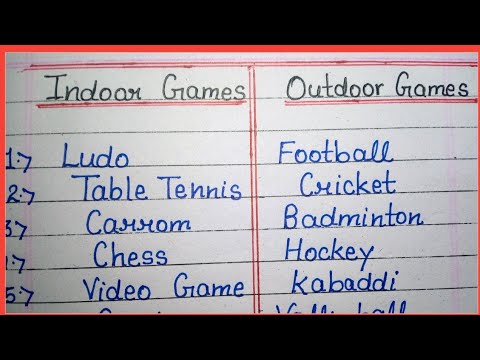 Indoor Games Outdoor Games
1:→ Ludo Football
2:→ Table Tennis Cricket
3:→ Carrom Badminton
Chess Hockey
5:→ Video Game Kabaddi